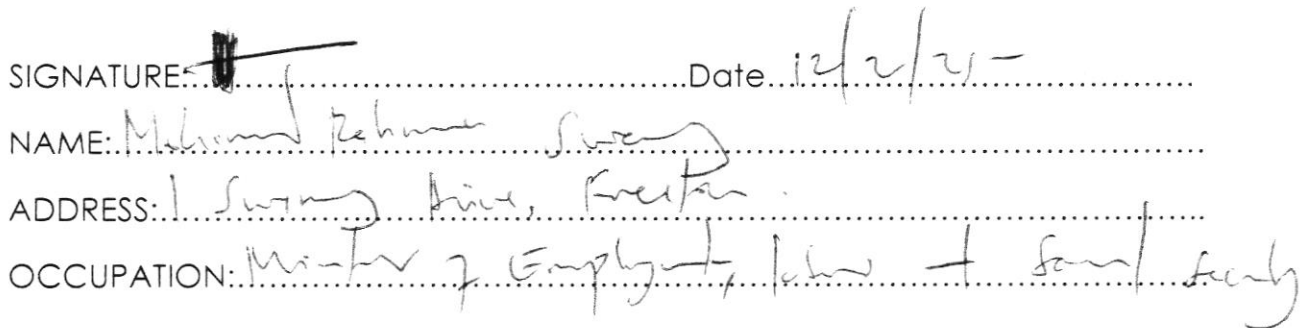 SIGNATURE: Date 12/2/25
NAME: Mohamed Rahman Swaray
ADDRESS: 1 Swaray Drive, Freetown.
OCCUPATION: Minister of Employment, labour & Social Security